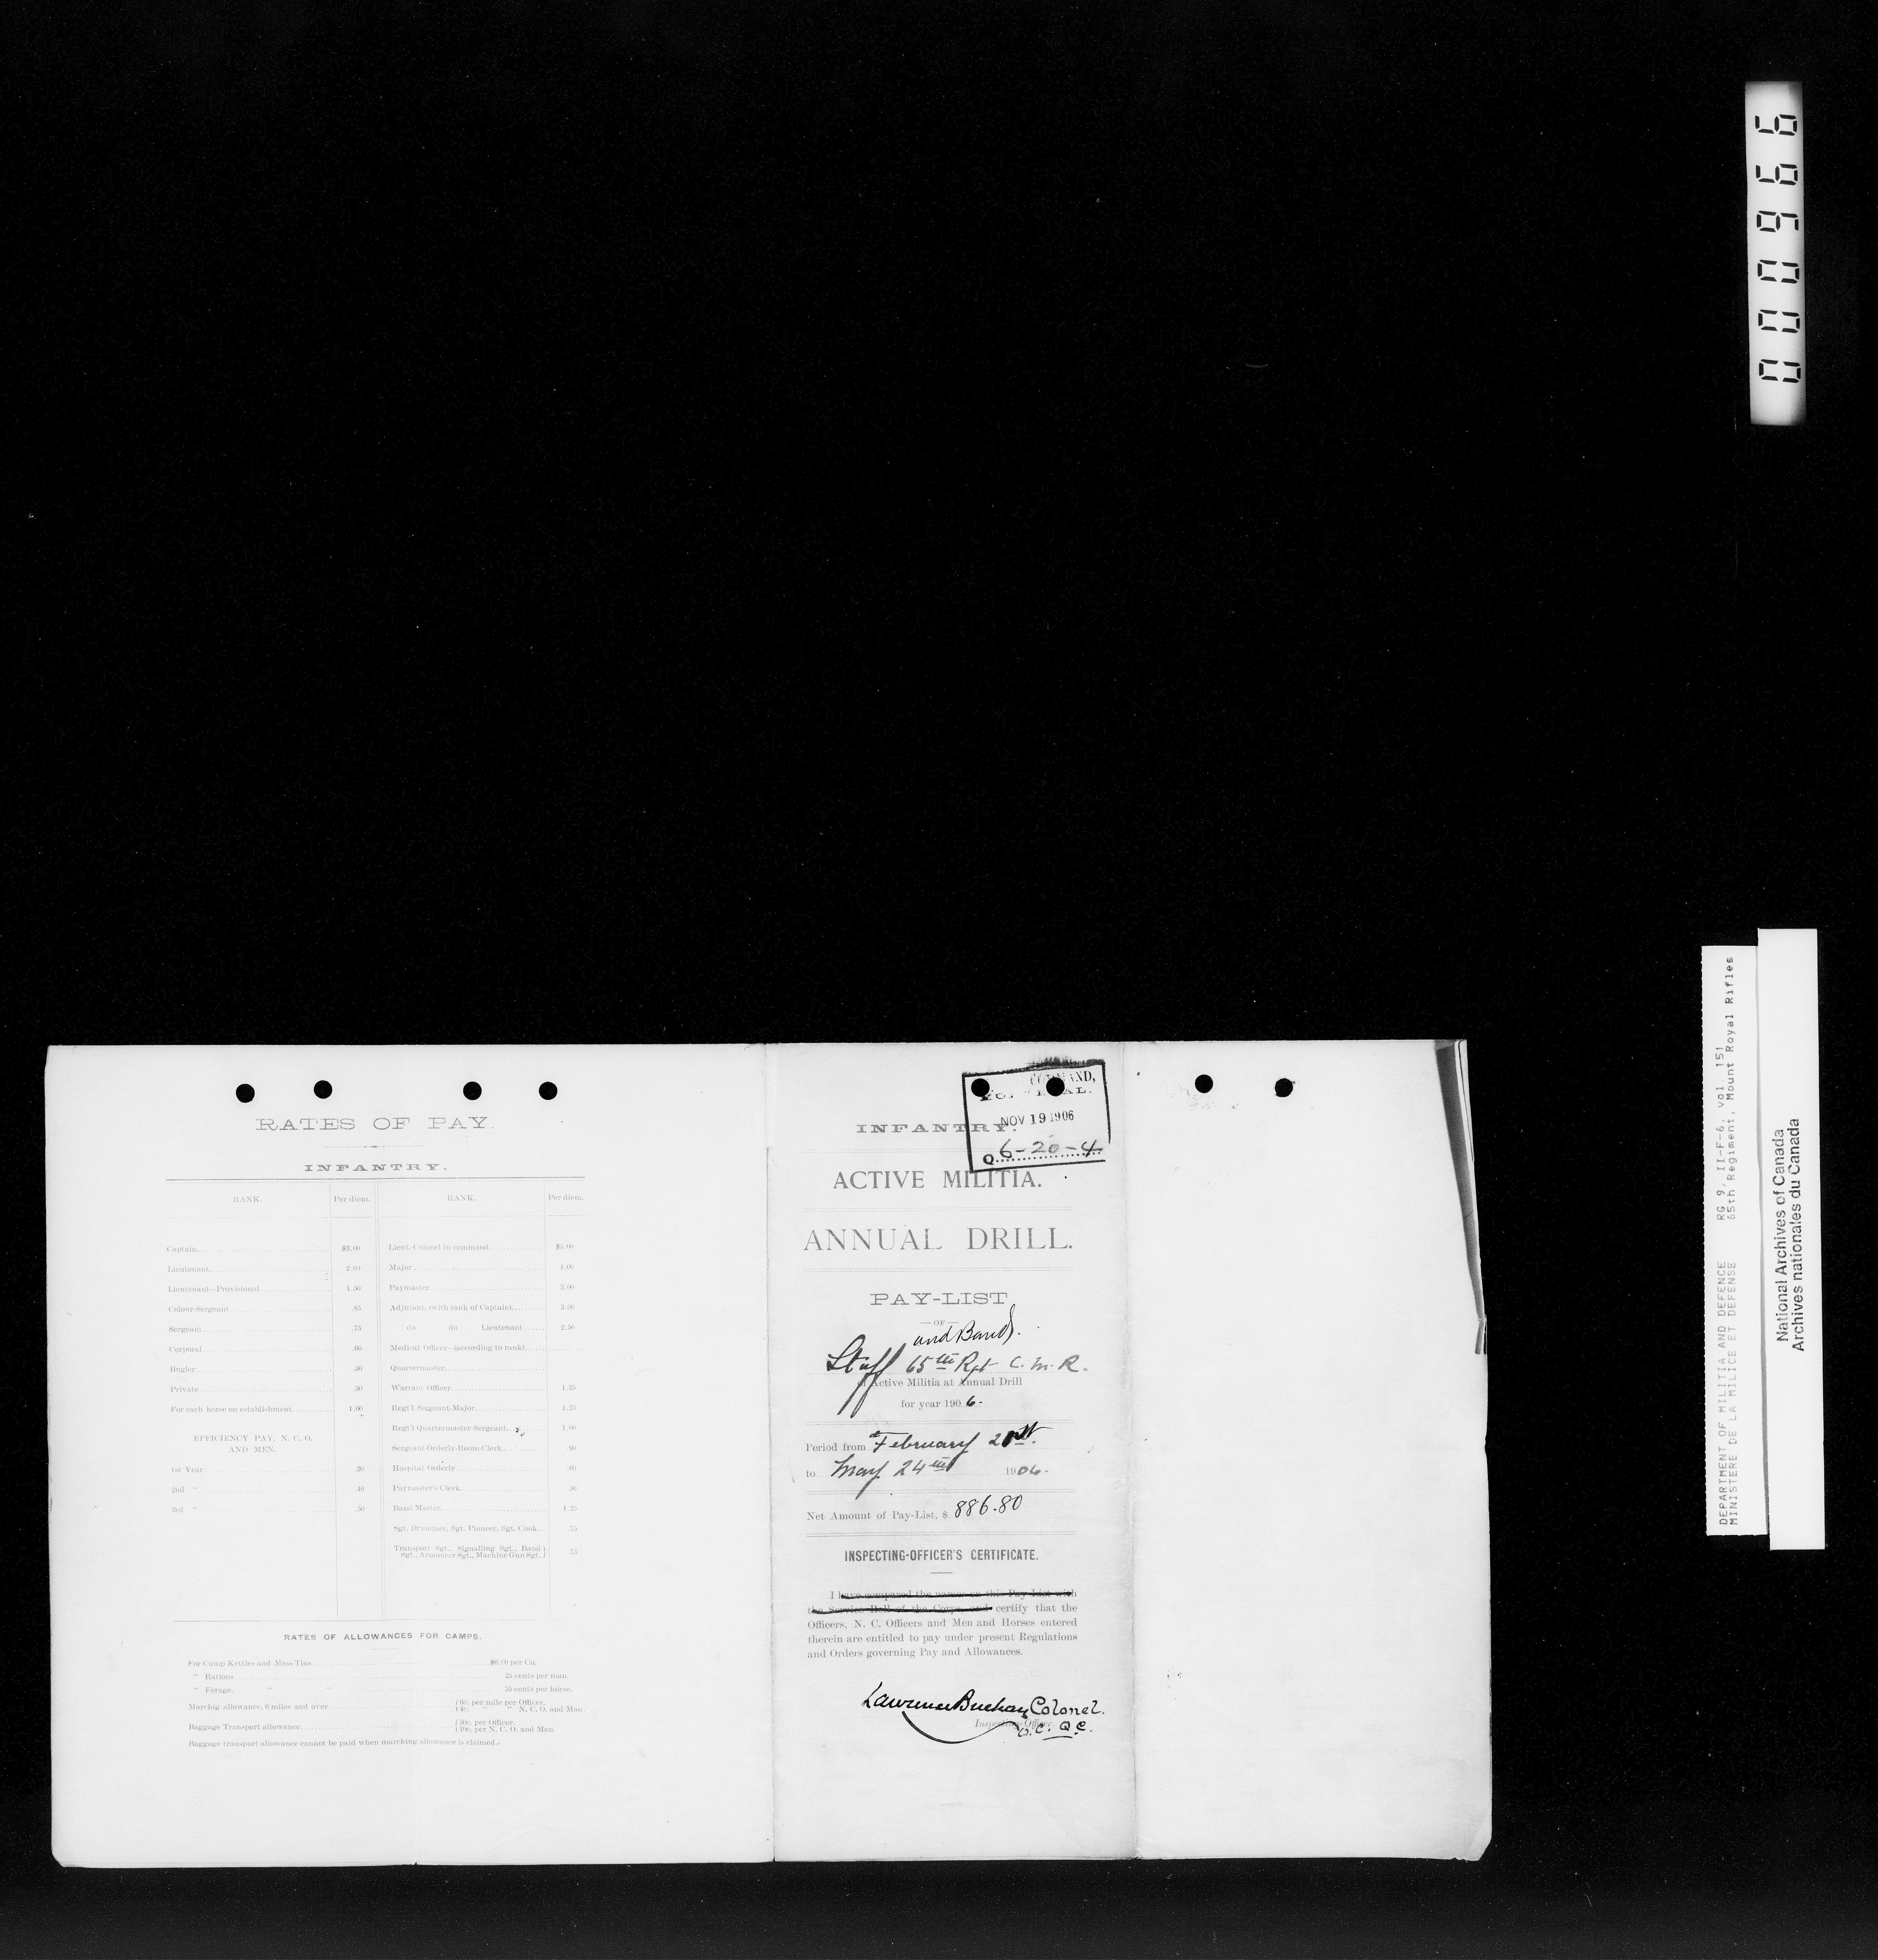 RATES OF PAY.
INFANTRY.
RANK. Per diem. RANK. Per diem.
Captain $3.00 Lieut.-Colonel in command $5.00
Lieutenant 2.00 Major 4.00
Lieutenant—Provisional 1.50 Paymaster 3.00
Colour-Sergeant .85 Adjutant, (with rank of Captain) 3.00
Sergeant .75 do do Lieutenant 2.50
Corporal .60 Medical Officer—(according to rank)
Bugler .50 Quartermaster
Private .50 Warrant Officer 1.25
For each horse on establishment 1.00 Regt'l Sergeant-Major 1.25
Regt'l Quartermaster Sergeant 1.00
EFFICIENCY PAY, N. C. O.
AND MEN.
Sergeant-Orderly-Room-Clerk .90
1st Year .20 Hospital Orderly .60
2nd " .40 Paymaster's Clerk .50
3rd " .50 Band Master 1.25
Sgt. Drummer, Sgt. Pioneer, Sgt. Cook .75
Transport Sgt., Signalling Sgt., Band
Sgt., Armourer Sgt., Machine Gun Sgt. .75
RATES OF ALLOWANCES FOR CAMPS.
For Camp Kettles and Mess Tins per Co.
" Rations 25 cents per man.
" Forage. " " cents per horse.
Marchig allowance, 6 miles and over 6c. per mile per Officer.
4c. " " N. C. O. and Man.
Baggage Transport allowance 50c. per Officer.
per N. C. O. and Man.
Baggage transport allowance cannot be paid when marching allowance is claimed.
NOV 19 1906
Q 6-20-4
INFANTRY.
ACTIVE MILITIA.
ANNUAL DRILL.
PAY-LIST
—OF—
and Band.
Staff 65th Rgt C. M. R.
of Active Militia at Annual Drill
for year 1906.
Period from February 21st.
to May 24th 1906.
Net Amount of Pay-List, $ 886.80
INSPECTING-OFFICER'S CERTIFICATE.
I have compared the names on this Pay List with
the Service Roll of the Corps, and certify that the
Officers, N. C. Officers and Men and Horses entered
therein are entitled to pay under present Regulations
and Orders governing Pay and Allowances.
Lawrence Buchan Colonel.
Inspecting Officer.
O.C. Q.C.
000966
DEPARTMENT OF MILITIA AND DEFENCE RG 9, II-F-6, vol. 151
MINISTERE DE LA MILICE ET DEFENSE 65th Regiment, Mount Royal Rifles
National Archives of Canada
Archives nationales du Canada